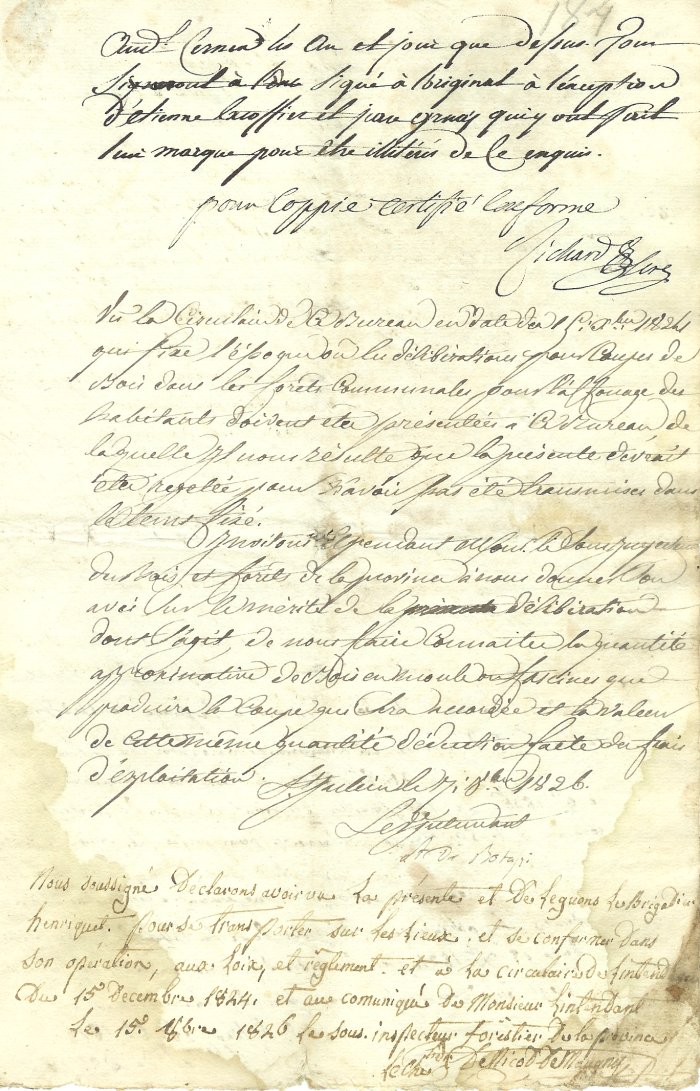 184
audt Cernex les an et jour que dessus. Tous
signé à l'original à l'exception
d'étienne lacoffier et jean qui y ont fait
leur marque pour être illitérés de ce enquis.
pour Coppie Certifié Conforme
Richard
Vu la Circulaire de Ce Bureau en date du 15 Xbre 1824
qui fixe l'époque où les délibérations pour Coupes de
Bois dans les forêts Communales pour l'affouage des
habitants doivent etre présentées à Ce Bureau de
laquelle yl nous résulte que la présente devrait
être rejetée pour n'avoir pas été transmises dans
le tems fixé.
Invitons Cependant Monsr. le Sous inspecteur
des Bois et forêts de la province à nous donner Son
avis sur le mérite de la présente délibération
dont s'agit, de nous faire Connaitre la quantité
approximative de Bois en moule ou fascines que
produira la Coupe qui Sera accordée et la valeur
de cette même quantité déduction faite des frais
d'exploitation. St Julien le 1826.
L'Intendant
Nous soussigné Déclarons avoir vu La présente et Deleguons Le Brigadier
henriquet. pour se transporter sur Les Lieux. et se conformer Dans
son opération, aux Loix, et règlement. et à La circulaire de Lintendance
Du 15e Decembre 1824. et au comuniqué De Monsieur Lintendant
Le 15e. 1826 Le sous. inspecteur forestier De la province
Le Cher